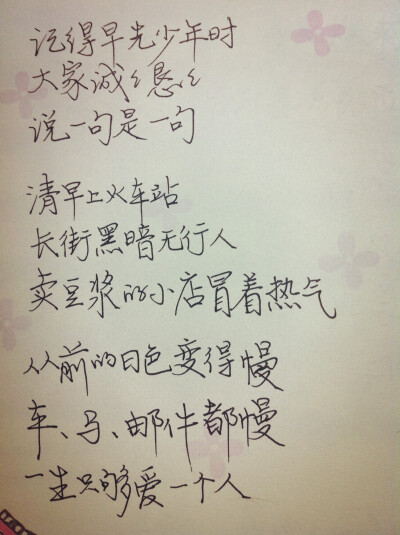 记得早先少年时
大家诚诚恳恳
说一句是一句
清早上火车站
长街黑暗无行人
卖豆浆的小店冒着热气
从前的日色变得慢
车、马、邮件都慢
一生只够爱一个人